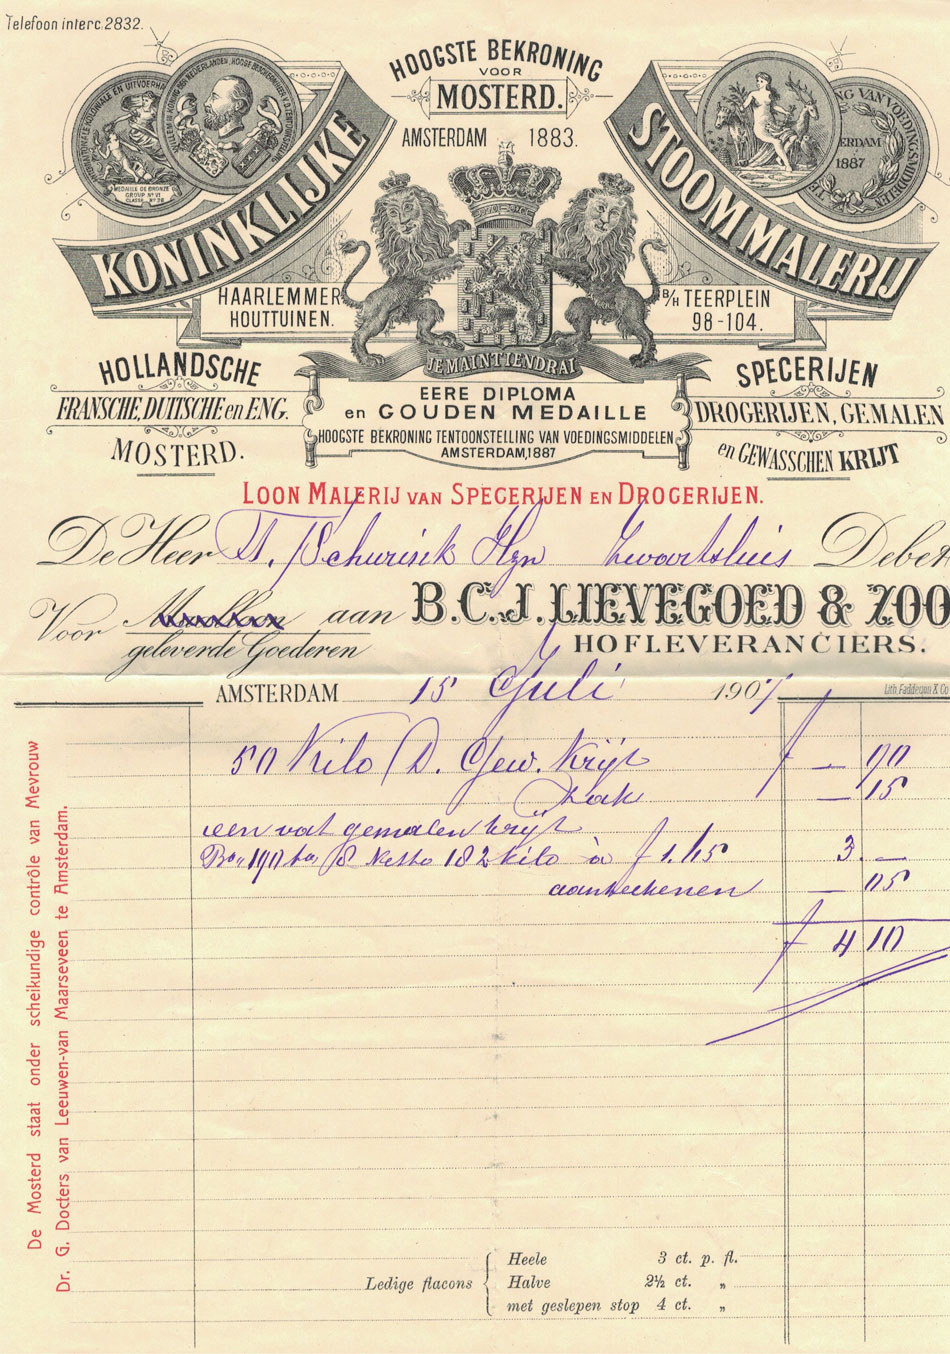 Telefoon interc. 2832.
HOOGSTE BEKRONING
VOOR
MOSTERD.
AMSTERDAM 1883.
KONINKLIJKE STOOMMALERIJ
MEDAILLE DE BRONZE
GROUP No VI
1887
HAARLEMMER
HOUTTUINEN.
B/H TEERPLEIN
98-104.
JE MAINTIENDRAI
HOLLANDSCHE
FRANSCHE, DUITSCHE en ENG.
MOSTERD.
EERE DIPLOMA
en GOUDEN MEDAILLE
HOOGSTE BEKRONING TENTOONSTELLING VAN VOEDINGSMIDDELEN
AMSTERDAM, 1887
SPECERIJEN
DROGERIJEN, GEMALEN
en GEWASSCHEN KRIJT
LOON MALERIJ VAN SPECERIJEN EN DROGERIJEN.
De Heer Schurink Hzn Zwartsluis Debet
Voor aan B.C.J. LIEVEGOED & ZOO
geleverde Goederen
HOFLEVERANCIERS.
AMSTERDAM 15 Juli 1907
Lith. Faddegon & Co
50 Kilo D. Gew. Krijt f — 90
Zak — 15
een vat gemalen krijt
Bo 190 ta 8 Netto 182 Kilo à f 1.65 3. —
aanteekenen — 05
f 4 10
De Mosterd staat onder scheikundige contrôle van Mevrouw
Dr. G. Docters van Leeuwen-van Maarseveen te Amsterdam.
Ledige flacons
Heele 3 ct. p. fl.
Halve 2½ ct. „
met geslepen stop 4 ct. „